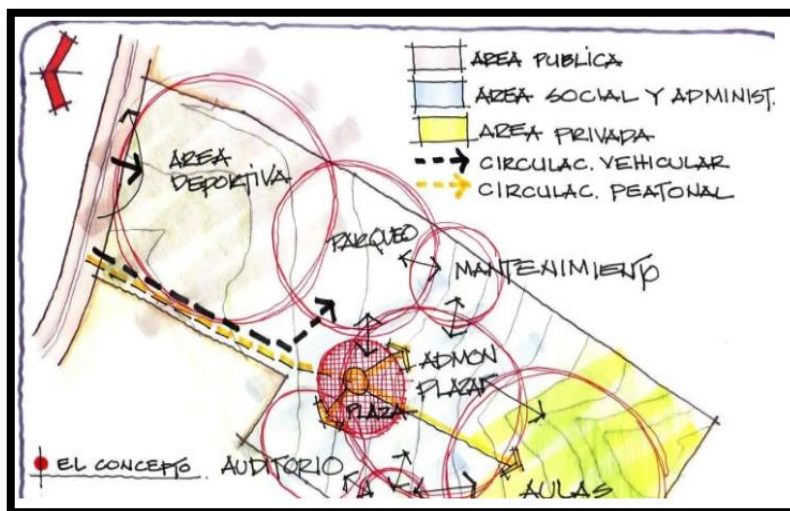 AREA PUBLICA
AREA SOCIAL Y ADMINIST.
AREA PRIVADA
CIRCULAC. VEHICULAR
CIRCULAC. PEATONAL
AREA
DEPORTIVA
PARQUEO
MANTENIMIENTO
ADMON
PLAZA
EL CONCEPTO
AUDITORIO
AULAS